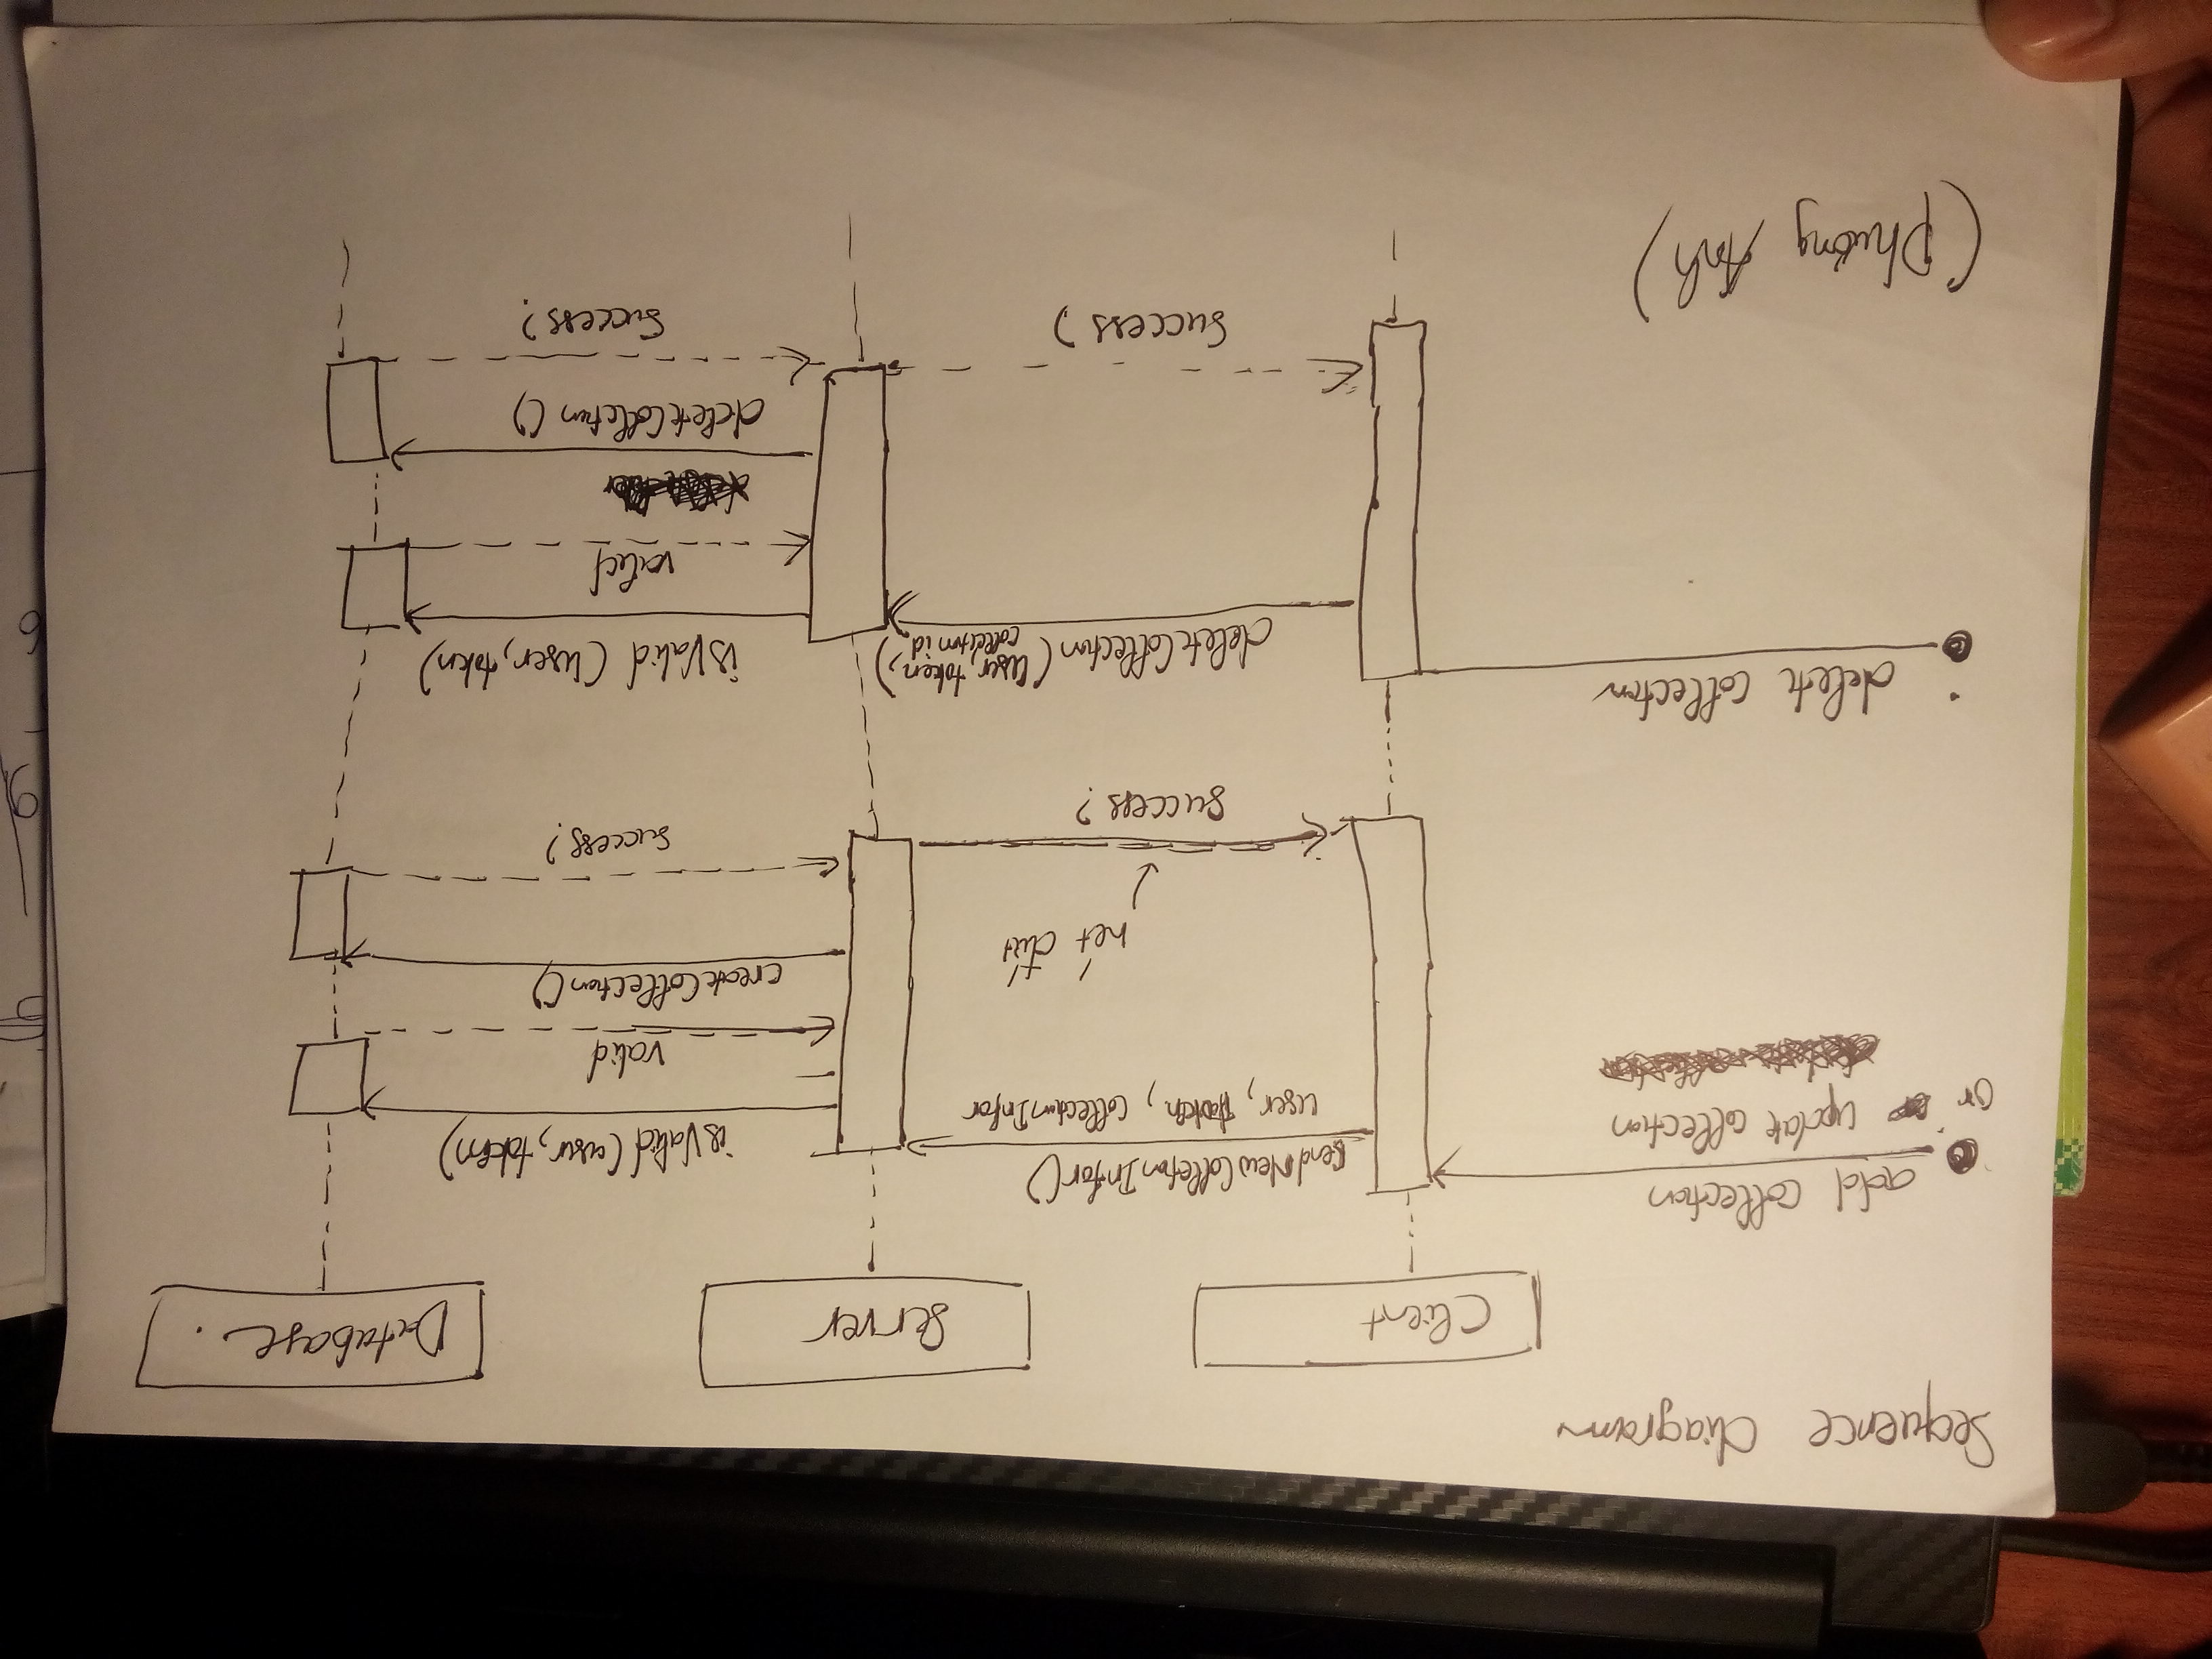 Sequence diagram
Client
Server
Database.
add collection
or update collection
sendNewCollectionInfor()
user, token, collectionInfor
isValid (user, token)
valid
createCollection()
success?
success?
hết dứt
delete collection
deleteCollection (user, token,
collection id)
isValid (user, token)
valid
deleteCollection ()
success?
success?
(Phương Anh)